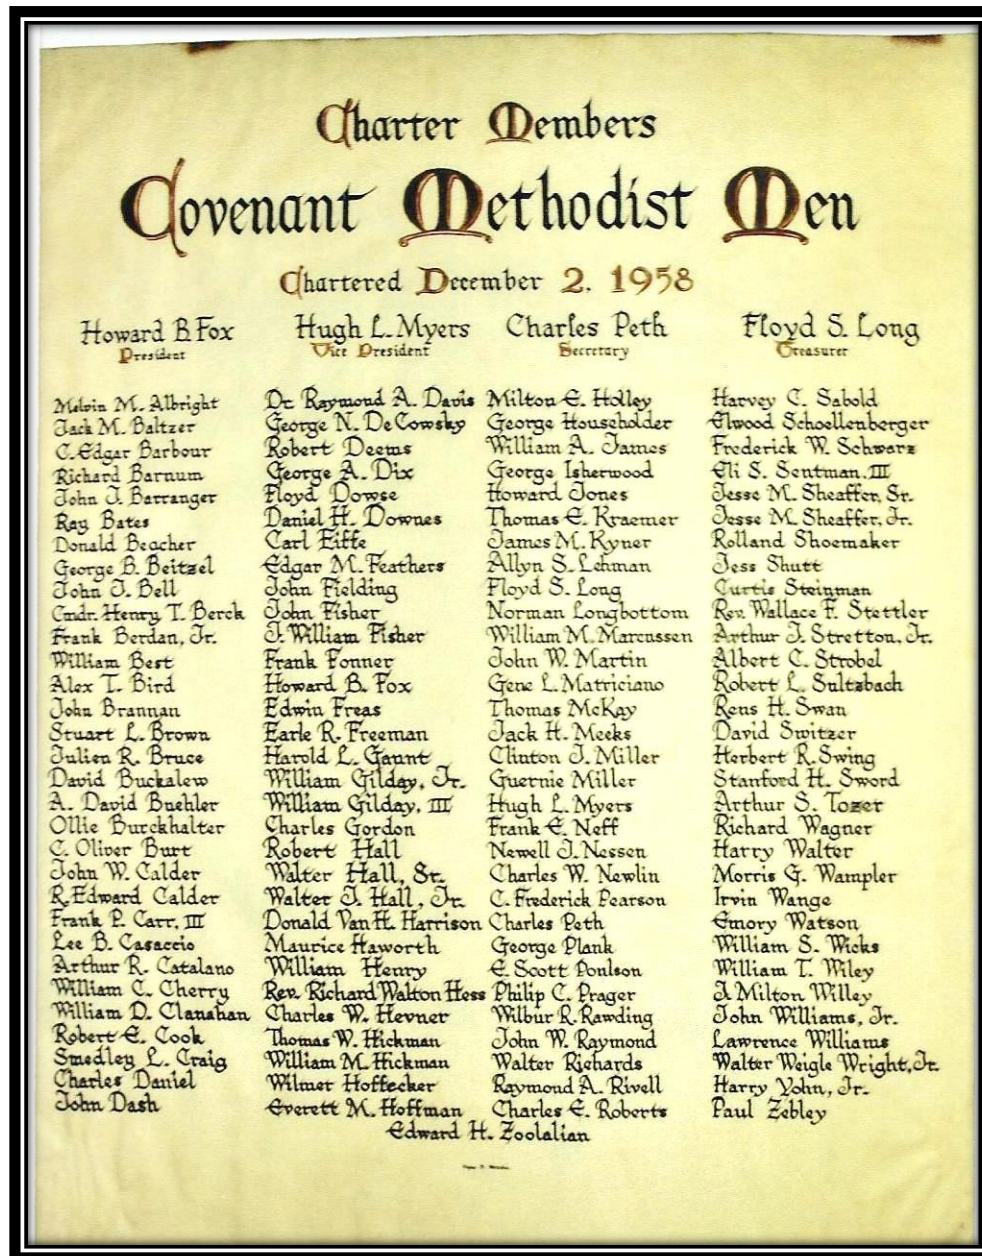 Charter Members
Covenant Methodist Men
Chartered December 2, 1958
Howard B. Fox
President
Hugh L. Myers
Vice President
Charles Peth
Secretary
Floyd S. Long
Treasurer
Melvin M. Albright
Jack M. Baltzer
C. Edgar Barbour
Richard Barnum
John J. Barranger
Ray Bates
Donald Beacher
George B. Beitzel
John J. Bell
Cmdr. Henry T. Berck
Frank Berdan, Jr.
William Best
Alex T. Bird
John Brannan
Stuart L. Brown
Julien R. Bruce
David Buckalew
A. David Buehler
Ollie Burckhalter
C. Oliver Burt
John W. Calder
R. Edward Calder
Frank P. Carr, III
Lee B. Casaccio
Arthur R. Catalano
William C. Cherry
William D. Clanahan
Robert E. Cook
Smedley L. Craig
Charles Daniel
John Dash
Dr. Raymond A. Davis
George N. DeCowsky
Robert Deems
George A. Dix
Floyd Dowse
Daniel H. Downes
Carl Eiffe
Edgar M. Feathers
John Fielding
John Fisher
J. William Fisher
Frank Fonner
Howard B. Fox
Edwin Freas
Earle R. Freeman
Harold L. Gaunt
William Gilday, Jr.
William Gilday, III
Charles Gordon
Robert Hall
Walter Hall, Sr.
Walter J. Hall, Jr.
Donald Van H. Harrison
Maurice Haworth
William Henry
Rev. Richard Walton Hess
Charles W. Hevner
Thomas W. Hickman
William M. Hickman
Wilmer Hoffecker
Everett M. Hoffman
Milton E. Holley
George Householder
William A. James
George Isherwood
Howard Jones
Thomas E. Kraemer
James M. Kyner
Allyn S. Lehman
Floyd S. Long
Norman Longbottom
William M. Marcussen
John W. Martin
Gene L. Matriciano
Thomas McKay
Jack H. Meeks
Clinton J. Miller
Guernie Miller
Hugh L. Myers
Frank E. Neff
Newell J. Nessen
Charles W. Newlin
C. Frederick Pearson
Charles Peth
George Plank
E. Scott Poulson
Philip C. Prager
Wilbur R. Rawding
John W. Raymond
Walter Richards
Raymond A. Rivell
Charles E. Roberts
Harvey C. Sabold
Elwood Schoellenberger
Frederick W. Schwarz
Eli S. Sentman, III
Jesse M. Sheaffer, Sr.
Jesse M. Sheaffer, Jr.
Rolland Shoemaker
Jess Shutt
Curtis Steinman
Rev. Wallace F. Stettler
Arthur J. Stretton, Jr.
Albert C. Strobel
Robert L. Sultzbach
Rens H. Swan
David Switzer
Herbert R. Swing
Stanford H. Sword
Arthur S. Tozer
Richard Wagner
Harry Walter
Morris G. Wampler
Irvin Wange
Emory Watson
William S. Wicks
William T. Wiley
J. Milton Willey
John Williams, Jr.
Lawrence Williams
Walter Weigle Wright, Jr.
Harry Yohn, Jr.
Paul Zebley
Edward H. Zoolalian